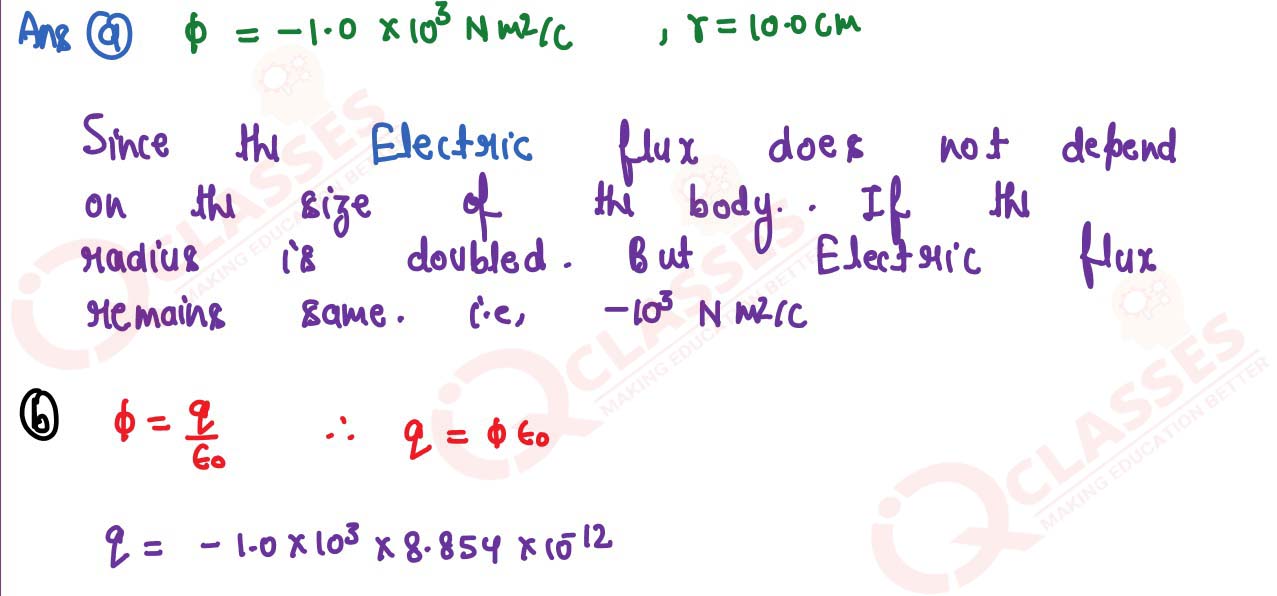 Ans (a) ϕ = -1.0 × 10³ N m2/C , r = 10.0 cm
Since the Electric flux does not depend
on the size of the body. . If the
radius is doubled. But Electric flux
remains same. i.e, -10³ N m2/C
(b) ϕ = q/ϵ₀ ∴ q = ϕ ϵ₀
q = - 1.0 × 10³ × 8.854 × 10⁻¹²
iQ CLASSES
MAKING EDUCATION BETTER
iQ CLASSES
MAKING EDUCATION BETTER
iQ CLASSES
MAKING EDUCATION BETTER